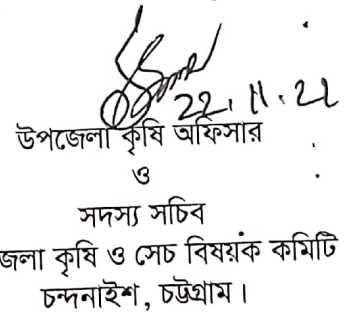 22.11.22
উপজেলা কৃষি অফিসার
ও
সদস্য সচিব
জেলা কৃষি ও সেচ বিষয়ক কমিটি
চন্দনাইশ, চট্টগ্রাম।